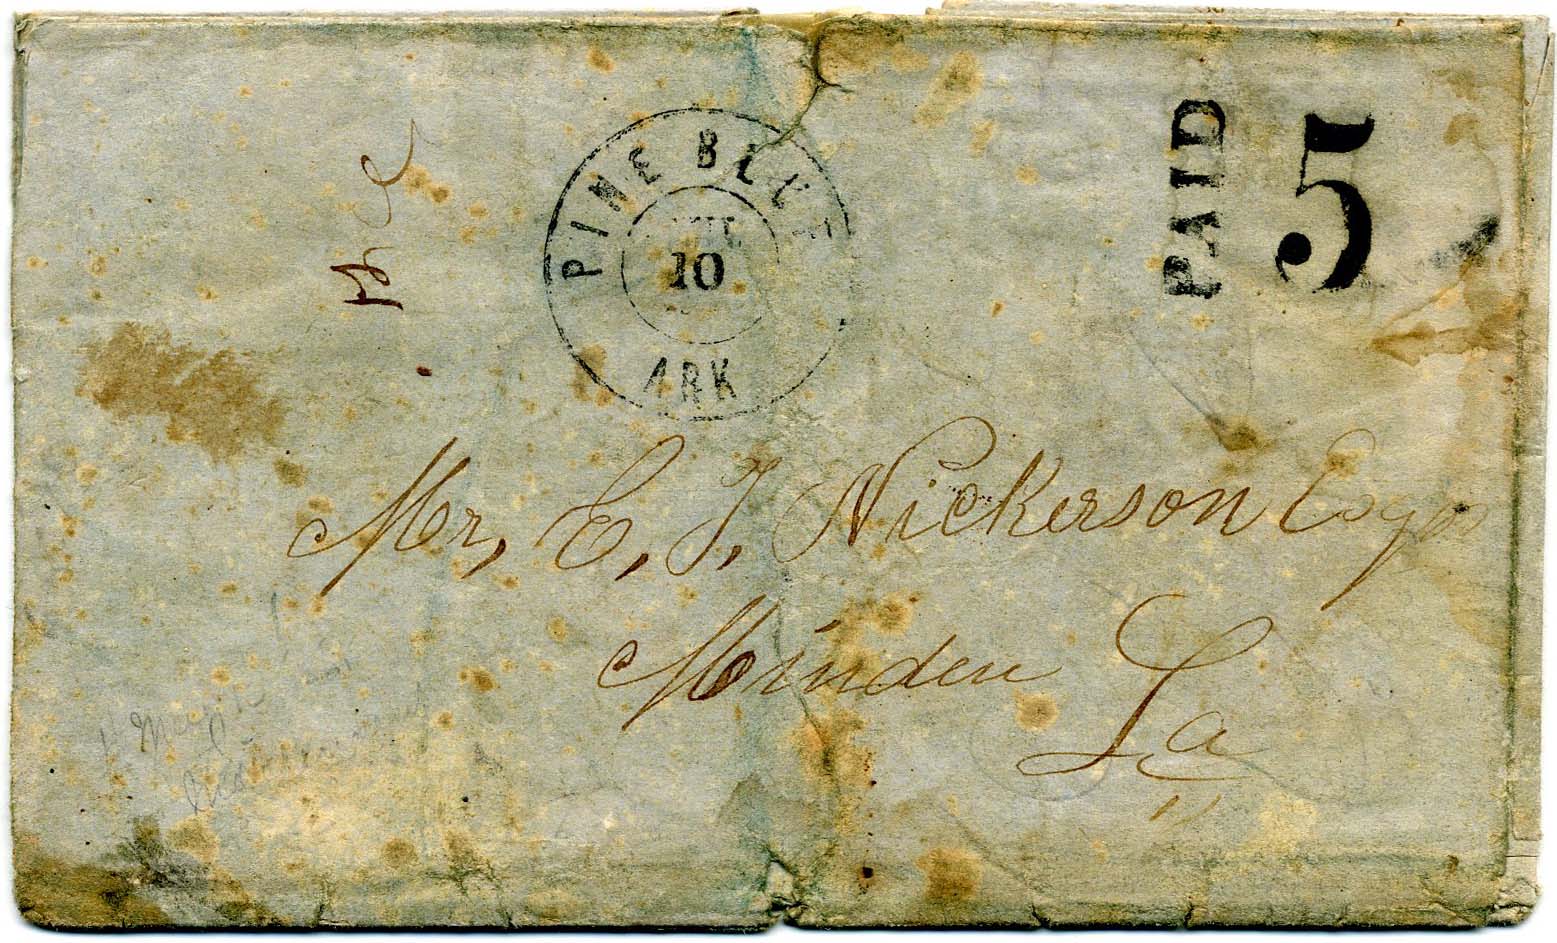 PINE BLUFF
10
ARK
PAID
5
Mr, E, J, Nickerson Esqr
Minden
La